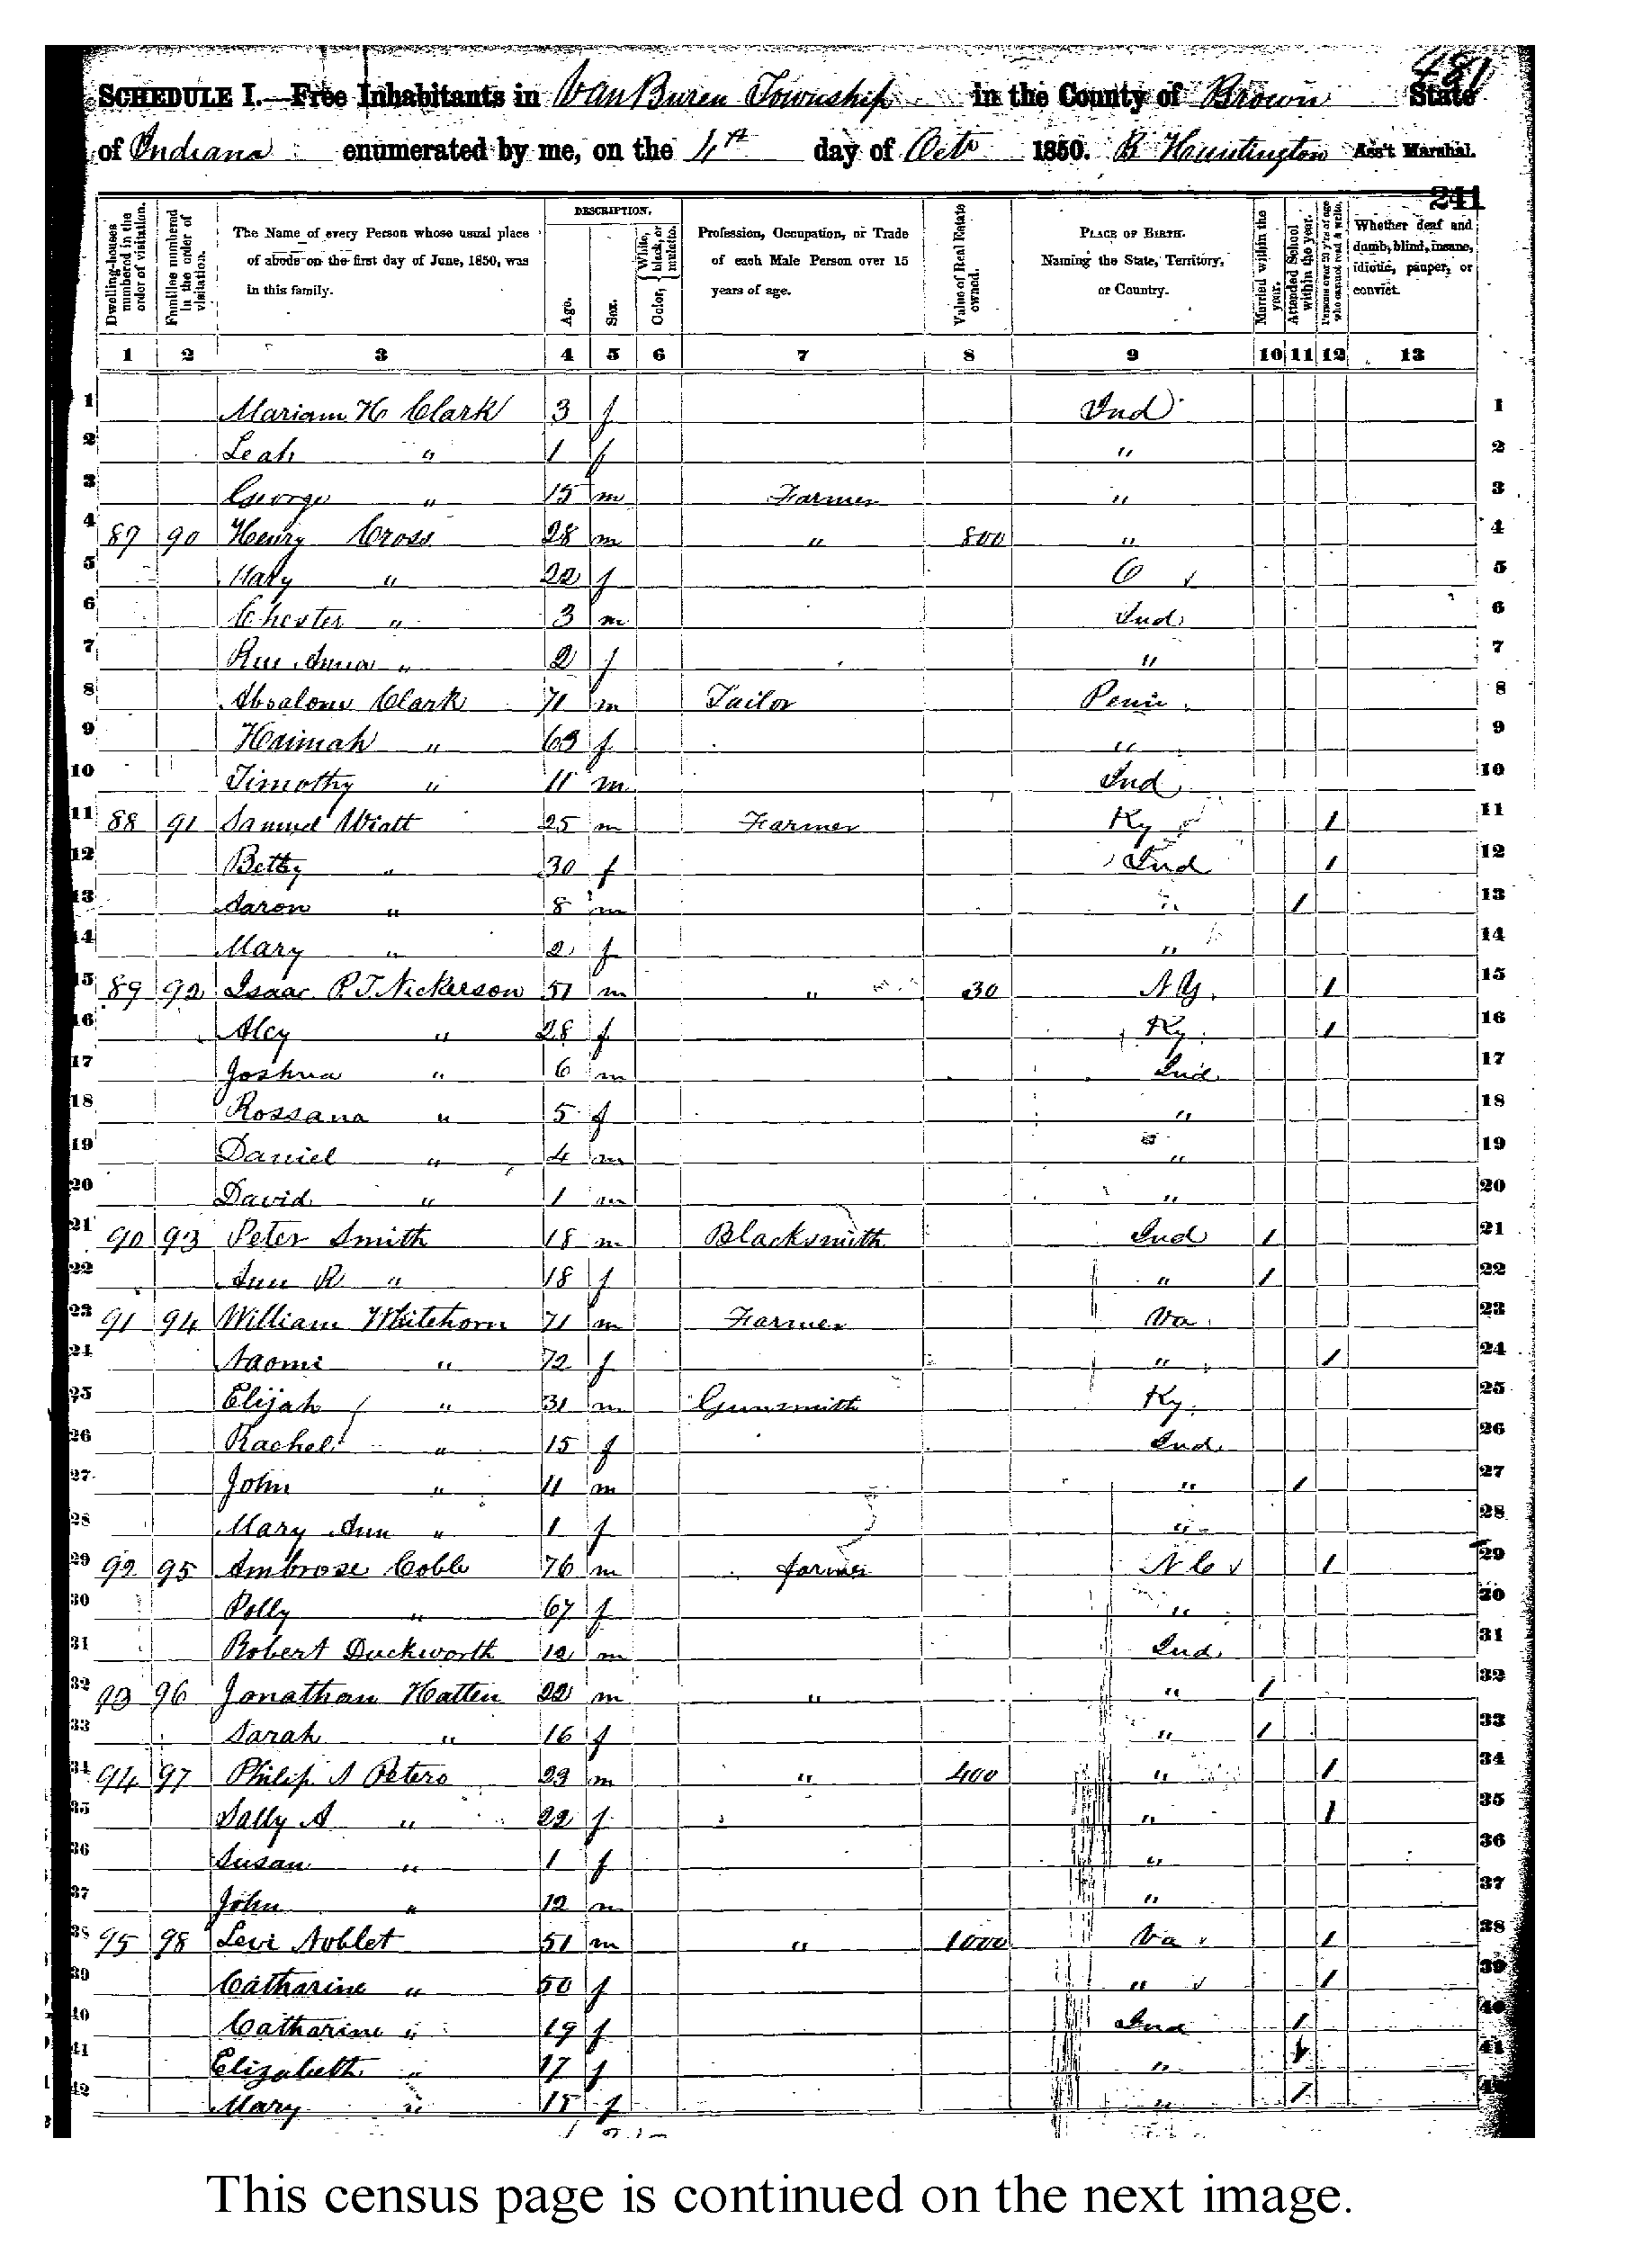 481
SCHEDULE I.—Free Inhabitants in Van Buren Township in the County of Brown State
of Indiana enumerated by me, on the 4th day of Octo 1850. B Huntington Ass't Marshal.
241
Dwelling-houses numbered in the order of visitation.
Families numbered in the order of visitation.
The Name of every Person whose usual place of abode on the first day of June, 1850, was in this family.
DESCRIPTION.
Age.
Sex.
Color, { White, black, or mulatto.
Profession, Occupation, or Trade of each Male Person over 15 years of age.
Value of Real Estate owned.
PLACE OF BIRTH. Naming the State, Territory, or Country.
Married within the year.
Attended School within the year.
Persons over 20 y'rs of age who cannot read & write.
Whether deaf and dumb, blind, insane, idiotic, pauper, or convict.
1 2 3 4 5 6 7 8 9 10 11 12 13
1 Mariam H Clark 3 f Ind 1
2 Leah " 1 f " 2
3 George " 15 m Farmer " 3
4 87 90 Henry Cross 28 m " 800 " 4
5 Mary " 22 f O 5
6 Chester " 3 m Ind 6
7 Rue Anna " 2 f " 7
8 Absalom Clark 71 m Tailor Penn 8
9 Hannah " 63 f " 9
10 Timothy " 11 m Ind 10
11 88 91 Samuel Wiatt 25 m Farmer Ky / 11
12 Betty " 30 f Ind / 12
13 Aaron " 8 m " / 13
14 Mary " 2 f " 14
15 89 92 Isaac P. T. Nickerson 51 m " 30 N Y. / 15
16 Alcy " 28 f Ky. / 16
17 Joshua " 6 m Ind 17
18 Rossana " 5 f " 18
19 Daniel " 4 m " 19
20 David " 1 m " 20
21 90 93 Peter Smith 18 m Blacksmith Ind / 21
22 Ann R " 18 f " / 22
23 91 94 William Whitehorn 71 m Farmer Va 23
24 Naomi " 72 f " / 24
25 Elijah " 31 m Gunsmith Ky. 25
26 Rachel " 15 f Ind. 26
27 John " 11 m " / 27
28 Mary Ann " 1 f " 28
29 92 95 Ambrose Coble 76 m farmer N C / 29
30 Polly " 67 f " 30
31 Robert Duckworth 12 m Ind. 31
32 93 96 Jonathan Hatten 22 m " " / 32
33 Sarah " 16 f " / 33
34 94 97 Philip A Peters 23 m " 400 " / 34
35 Sally A " 22 f " / 35
36 Susan " 1 f " 36
37 John " 12 m " 37
38 95 98 Levi Noblet 51 m " 1000 Va / 38
39 Catharine " 50 f " / 39
40 Catharine " 19 f Ind / 40
41 Elizabeth " 17 f " / 41
42 Mary " 15 f " /
This census page is continued on the next image.